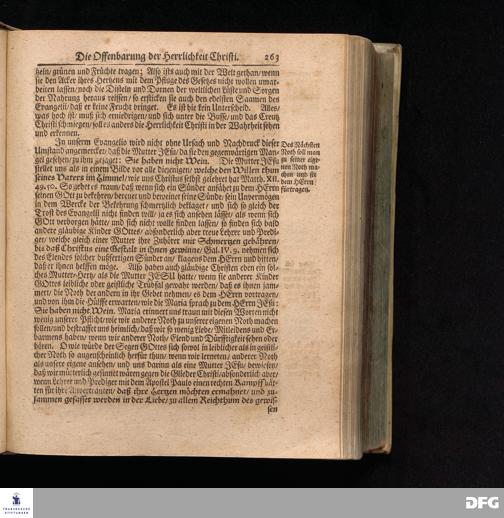 Die Offenbarung der Herrlichkeit Christi. 263
heln/ grünen und Früchte tragen; Also ists auch mit der Welt gethan/ wenn
sie den Acker ihres Hertzens mit dem Pfluge des Gesetzes nicht wollen umar-
beiten lassen/ noch die Disteln und Dornen der weltlichen Lüste und Sorgen
der Nahrung heraus reissen/ so ersticken sie auch den edelsten Saamen des
Evangelii/ daß er keine Frucht bringet. Es ist hie kein Unterscheid. Alles/
was hoch ist/ muß sich erniedrigen/ und sich unter die Busse/ und das Creutz
Christi schmiegen/ soll es anders die Herrlichkeit Christi in der Wahrheit sehen
und erkennen.
In unserm Evangelio wird nicht ohne Ursach und Nachdruck dieser
Umstand angemercket/ daß die Mutter JEsu/ da sie den gegenwärtigen Man-
gel gesehen/ zu ihm gesaget: Sie haben nicht Wein. Die Mutter JEsu
stellet uns als in einem Bilde vor alle diejenigen/ welche den Willen thun
seines Vaters im Himmel/ wie uns Christus selbst gelehret hat Matth. XII.
49. 50. So gehet es traun/ daß wenn sich ein Sünder anfähet zu dem HErrn
seinen GOtt zu bekehren/ bereuet und beweinet seine Sünde/ sein Unvermögen
in dem Wercke der Bekehrung schmertzlich beklaget/ und sich so gleich der
Trost des Evangelii nicht finden will/ ja es sich ansehen lässet/ als wenn sich
GOtt verborgen hätte/ und sich nicht wolle finden lassen/ so finden sich bald
andere gläubige Kinder GOttes/ absonderlich aber treue Lehrer und Predi-
ger/ welche gleich einer Mutter ihre Zuhörer mit Schmertzen gebähren/
bis daß Christus eine Gestalt in ihnen gewinne/ Gal. IV. 9. nehmen sich
des Elendes solcher bußfertigen Sünder an/ klagens dem HErrn und bitten/
daß er ihnen helffen möge. Also haben auch gläubige Christen eben ein sol-
ches Mutter-Hertz/ als die Mutter JESU hatte/ wenn sie anderer Kinder
GOttes leibliche oder geistliche Trübsal gewahr werden/ daß es ihnen jam-
mert/ die Noth der andern in ihr Gebet nehmen/ es dem HErrn vortragen/
und von ihm die Hülffe erwarten/ wie die Maria sprach zu dem HErrn JEsu:
Sie haben nicht Wein. Maria erinnert uns traun mit diesen Worten nicht
wenig unserer Pflicht/ wie wir anderer Noth zu unserer eigenen Noth machen
sollen/ und bestraffet uns heimlich/ daß wir so wenig Liebe/ Mitleidens und Er-
barmens haben/ wenn wir anderer Noth/ Elend und Dürfftigkeit sehen oder
hören. O wie würde der Segen GOttes sich sowol in leiblicher als in geistli-
cher Noth so augenscheinlich herfür thun/ wenn wir lerneten/ anderer Noth
als unsere eigene ansehen/ und uns darinn als eine Mutter JEsu/ beweisen/
daß wir mütterlich gesinnet wären gegen die Glieder Christi/ absonderlich aber/
wenn Lehrer und Prediger mit dem Apostel Paulo einen rechten Kampff hät-
ten für ihre Anvertrauten/ daß ihre Hertzen möchten ermahnet/ und zu-
sammen gefasset werden in der Liebe/ zu allem Reichthum des gewis-
sen
Des Nächsten
Noth soll man
zu seiner eige-
nen Noth ma-
chen/ und sie
dem HErrn
fürtragen.
FRANCKESCHE
STIFTUNGEN
DFG